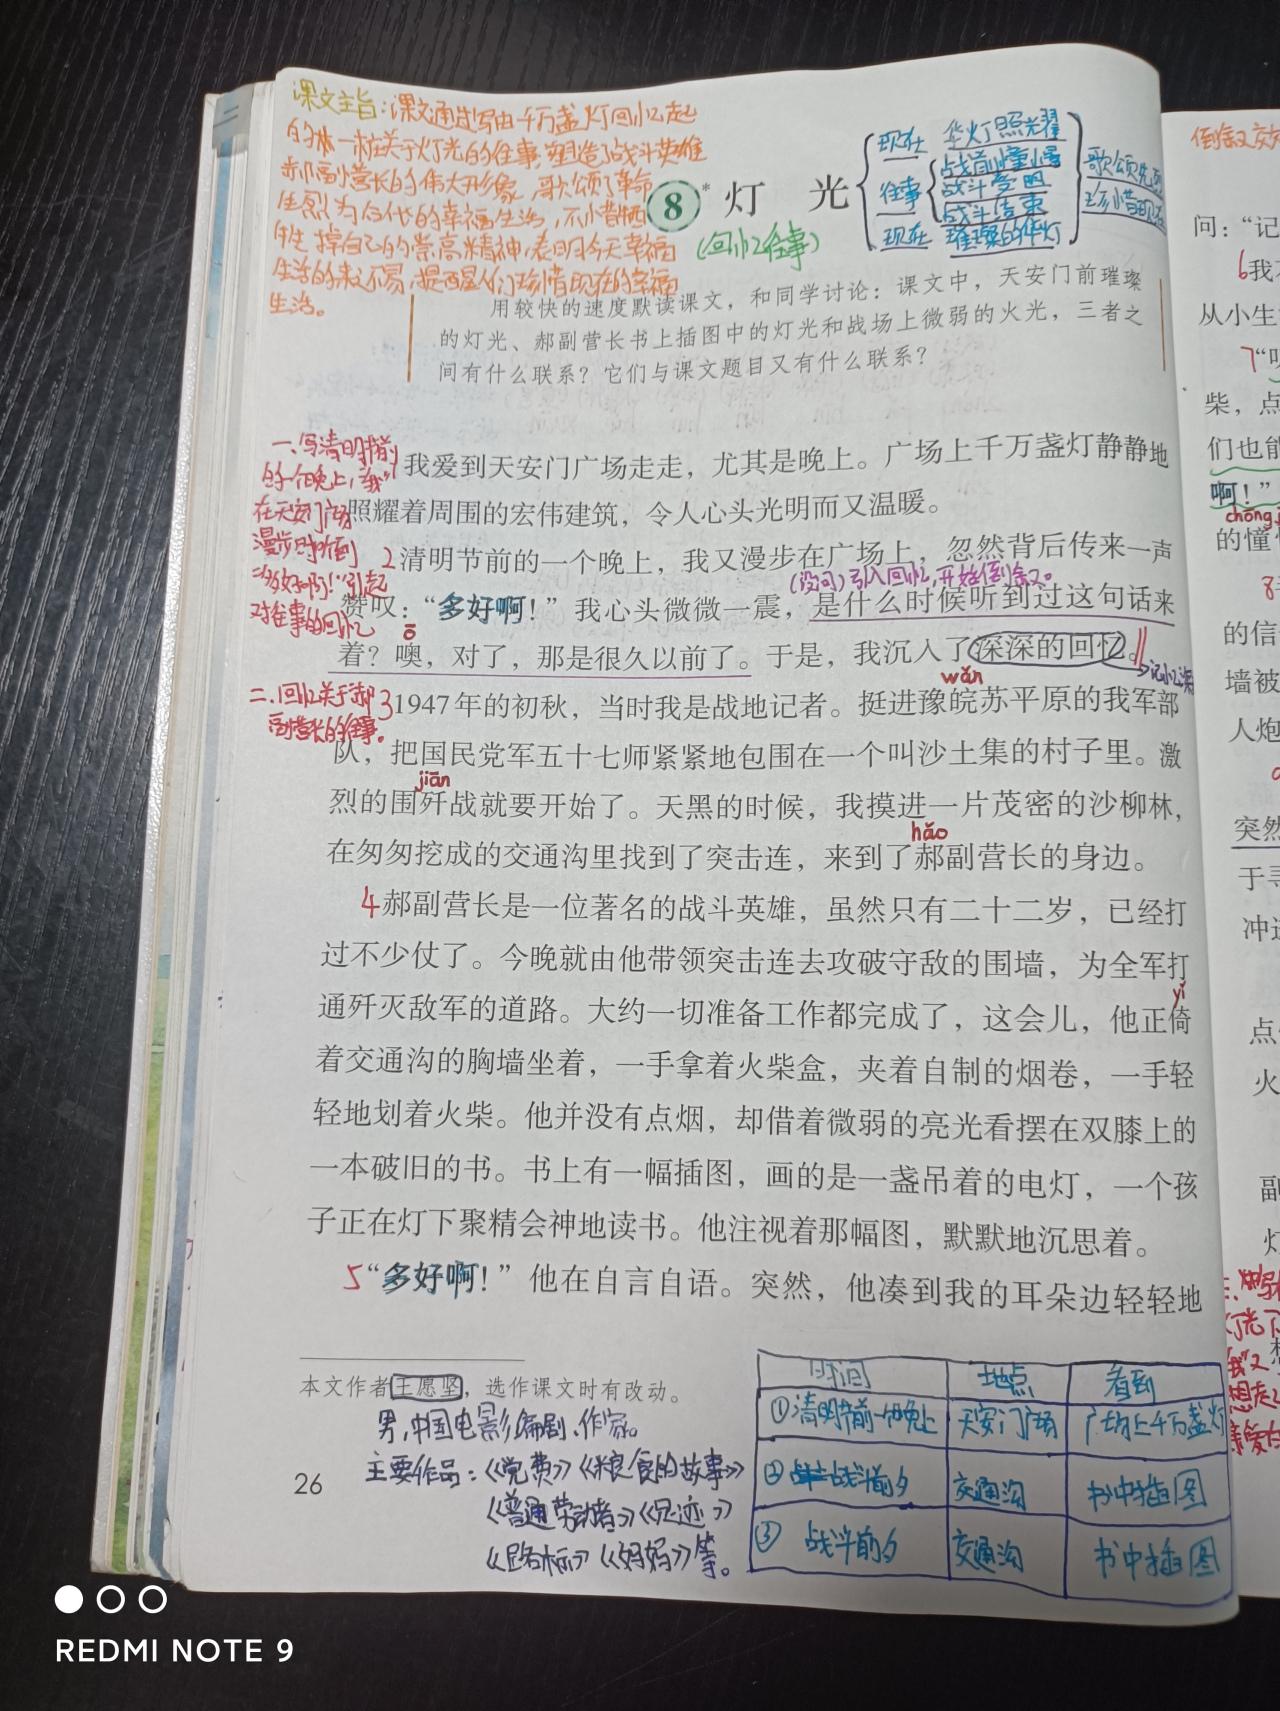 课文主旨：课文通过写由千万盏灯回忆起
的一桩关于灯光的往事，塑造了战斗英雄
郝副营长的伟大形象，歌颂了革命
先烈为后代的幸福生活，不惜牺
牲掉自己的崇高精神，表明今天幸福
生活的来之不易，提醒人们珍惜现在的幸福
生活。
8* 灯 光
(回忆往事)
现在 华灯照耀
往事 战前憧憬
战斗受阻
战斗结束
现在 璀璨的华灯
歌颂先烈
珍惜现在
用较快的速度默读课文，和同学讨论：课文中，天安门前璀璨
的灯光、郝副营长书上插图中的灯光和战场上微弱的火光，三者之
间有什么联系？它们与课文题目又有什么联系？
一、写清明节前
的一个晚上，“我”
在天安门广场
漫步时听到
“多好啊！”引起
对往事的回忆
我爱到天安门广场走走，尤其是晚上。广场上千万盏灯静静地
照耀着周围的宏伟建筑，令人心头光明而又温暖。
2清明节前的一个晚上，我又漫步在广场上，忽然背后传来一声
(设问)引入回忆，开始倒叙。
赞叹：“多好啊！”我心头微微一震，是什么时候听到过这句话来
ō
着？噢，对了，那是很久以前了。于是，我沉入了深深的回忆。
wǎn
二、回忆关于郝
副营长的往事。
3 1947年的初秋，当时我是战地记者。挺进豫皖苏平原的我军部
队，把国民党军五十七师紧紧地包围在一个叫沙土集的村子里。激
jiān
烈的围歼战就要开始了。天黑的时候，我摸进一片茂密的沙柳林，
hǎo
在匆匆挖成的交通沟里找到了突击连，来到了郝副营长的身边。
4郝副营长是一位著名的战斗英雄，虽然只有二十二岁，已经打
过不少仗了。今晚就由他带领突击连去攻破守敌的围墙，为全军打
yǐ
通歼灭敌军的道路。大约一切准备工作都完成了，这会儿，他正倚
着交通沟的胸墙坐着，一手拿着火柴盒，夹着自制的烟卷，一手轻
轻地划着火柴。他并没有点烟，却借着微弱的亮光看摆在双膝上的
一本破旧的书。书上有一幅插图，画的是一盏吊着的电灯，一个孩
子正在灯下聚精会神地读书。他注视着那幅图，默默地沉思着。
5“多好啊！”他在自言自语。突然，他凑到我的耳朵边轻轻地
本文作者王愿坚，选作课文时有改动。
男，中国电影编剧、作家。
主要作品：《党费》《粮食的故事》
《普通劳动者》《足迹》
《路标》《妈妈》等。
26
时间 地点 看到
①清明节前一个晚上 天安门广场 广场上千万盏灯
②战斗前夕 交通沟 书中插图
③战斗前夕 交通沟 书中插图
倒叙
问：“记
6我
从小生
7“
柴，点
们也能
啊！”
chōng
的憧
8
的信
墙被
人炮
突然
于寻
冲
点
火
副
REDMI NOTE 9